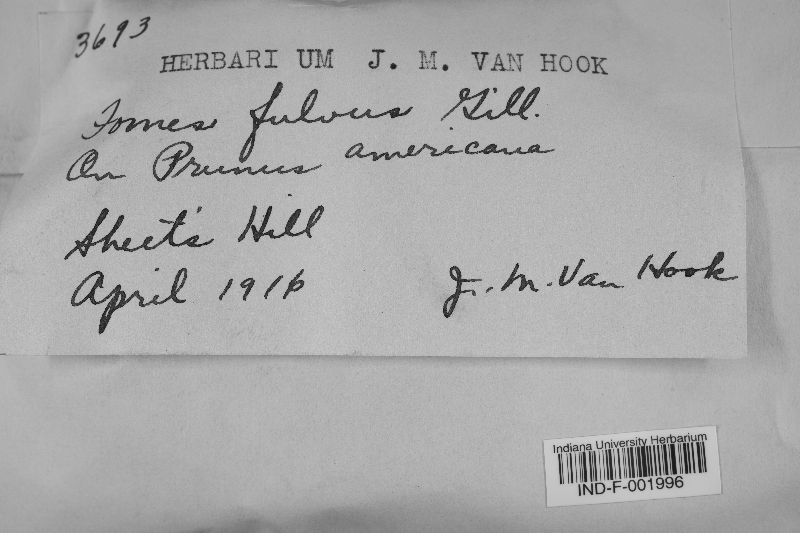 3693
HERBARI UM J. M. VAN HOOK
Fomes fulvus Gill.
On Prunus americana
Sheet's Hill
April 1916
J. M. Van Hook
Indiana University Herbarium
IND-F-001996